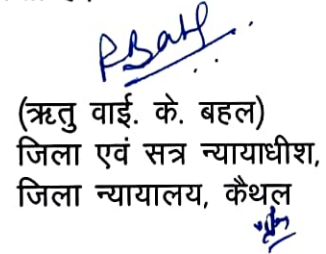 (ऋतु वाई. के. बहल)
जिला एवं सत्र न्यायाधीश,
जिला न्यायालय, कैथल